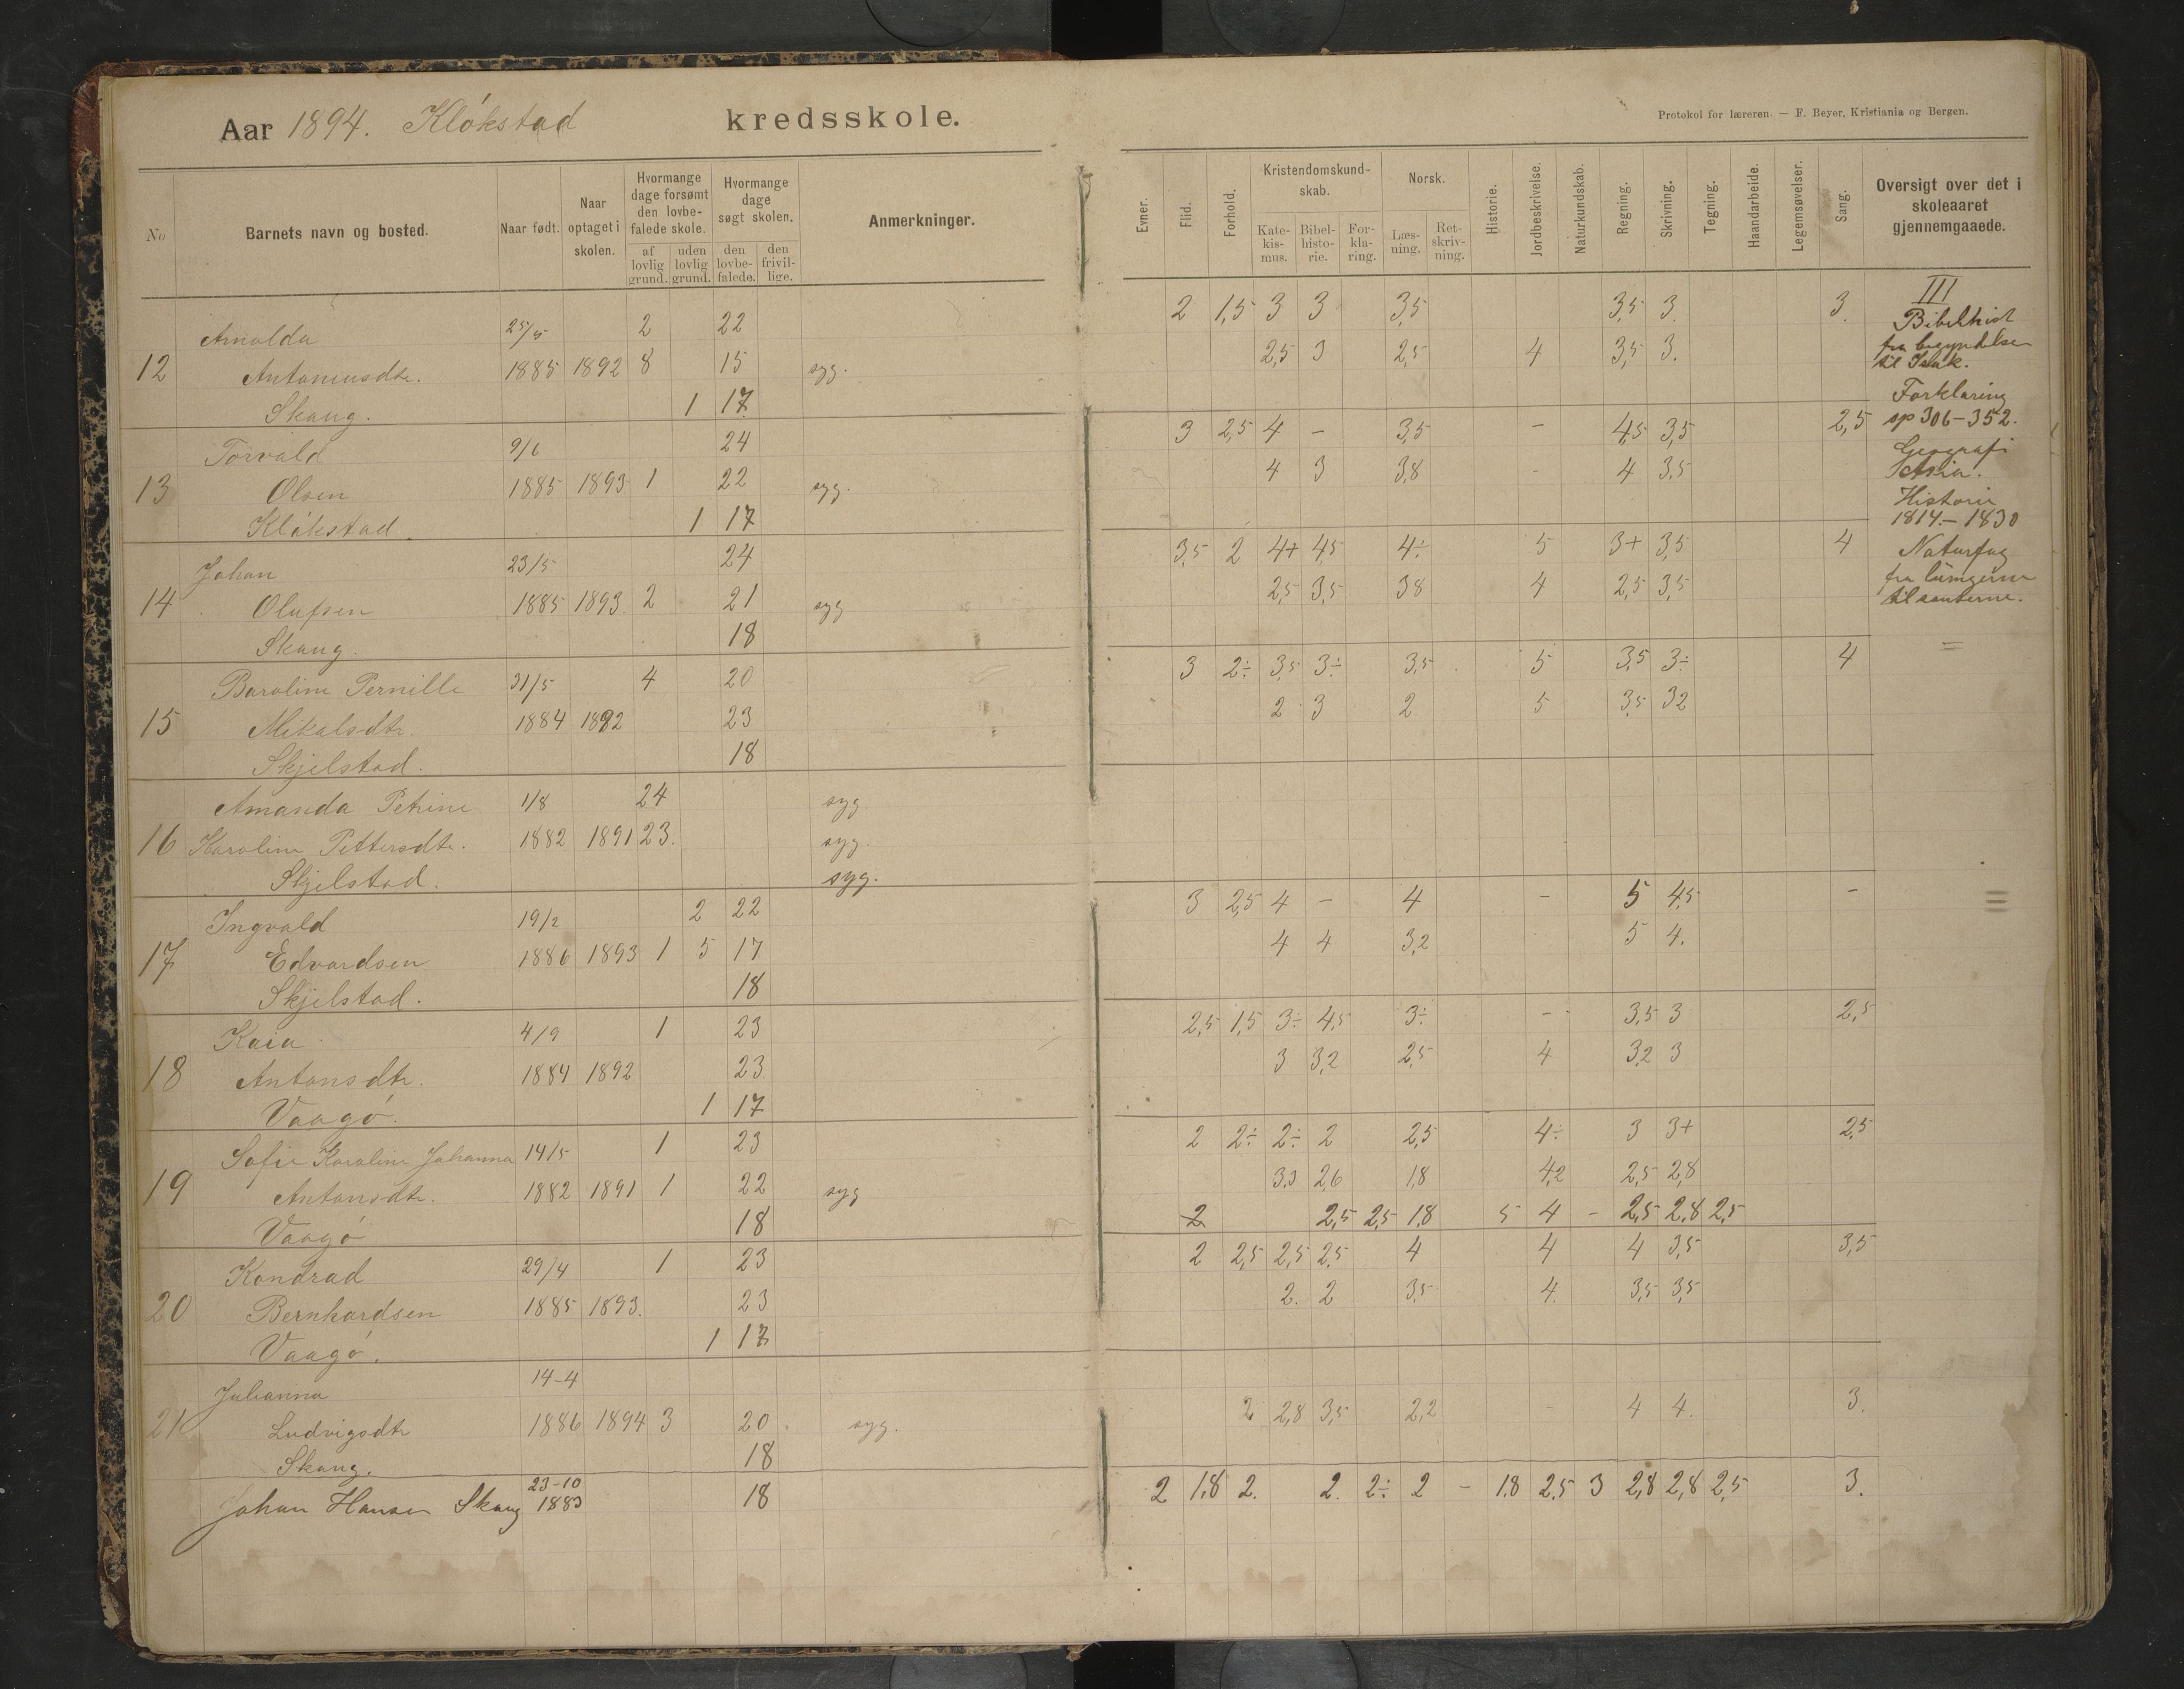 Aar 1894. Klökstad kredsskole.
Protokol for læreren. — F. Beyer, Kristiania og Bergen.
No
Barnets navn og bosted.
Naar født.
Naar optaget i skolen.
Hvormange dage forsømt den lovbefalede skole.
af lovlig grund.
uden lovlig grund.
Hvormange dage søgt skolen.
den lovbefalede.
den frivillige.
Anmerkninger.
Evner.
Flid.
Forhold.
Kristendomskundskab.
Katekismus.
Bibelhistorie.
Forklaring.
Norsk.
Læsning.
Retskrivning.
Historie.
Jordbeskrivelse.
Naturkundskab.
Regning.
Skrivning.
Tegning.
Haandarbeide.
Legemsøvelser.
Sang.
Oversigt over det i skoleaaret gjennemgaaede.
Arnolda 25/5 2 22 2 1,5 3 3 3,5 3,5 3. 3.
12 Antoniusdtr. 1885 1892 8 15 syg. 2,5 3 2,5 4 3,5 3.
Skaug. 1 17
Torvald 9/6 24 3 2,5 4 - 3,5 - 4,5 3,5 2,5
13 Olsen 1885 1893 1 22 syg. 4 3 3,8 - 4 3,5
Klökstad. 1 17
Johan 23/5 24 3,5 2 4+ 4,5 4÷ 5 3+ 3,5 4
14 Olufsen 1885 1893. 2 21 syg 2,5 3,5 38 4 2,5 3,5
Skaug. 18
Baroline Pernille 31/5 4 20 3 2÷ 3,5 3÷ 3,5 5 3,5 3÷ 4
15 Mikalsdtr. 1884 1892 23 2 3 2 5 3,5 32
Skjelstad. 18
Amanda Petrine 1/8 24 syg
16 Karoline Pettersdtr. 1882 1891 23. syg.
Skjelstad. syg.
Ingvald 19/2 2 22 3 2,5 4 - 4 - 5 4,5 -
17 Edvardsen 1886 1893 1 5 17 4 4 3,2 5 4.
Skjelstad. 18
Kaia 4/9 1 23 2,5 1,5 3÷ 4,5 3÷ - 3,5 3 2,5
18 Antonsdtr. 1884 1892 23 3 3,2 2,5 4 3,2 3
Vaagö. 1 17
Sofie Karoline Johanna 14/5 1 23 2 2÷ 2÷ 2 2,5 4÷ 3 3+ 2,5
19 Antonsdtr. 1882 1891 1 22 syg 3,3 2,6 1,8 4,2 2,5 2,8
Vaagö 18 2 2,5 2,5 1,8 5 4 - 2,5 2,8 2,5
Kondrad 29/4 1 23 2 2,5 2,5 2,5 4 4 4 3,5 3,5
20 Bernhardsen 1885 1893. 23 2. 2 3,5 4. 3,5 3,5
Vaagö. 1 17
Johanna 14-4
21 Ludvigsdtr 1886 1894 3 20 syg. 2 2,8 3,5 2,2 - 4 4. 3.
Skaug. 18
Johan Hansen Skaug 23-10 1883 18 2 1,8 2. 2. 2÷ 2 - 1,8 2,5 3 2,8 2,8 2,5 3.
III
Bibelhist
fra begyndelsen
til Isak.
Forklaring
sp 306-352.
Geografi
Asia.
Historie
1814.-1830
Naturfag
til
=
=